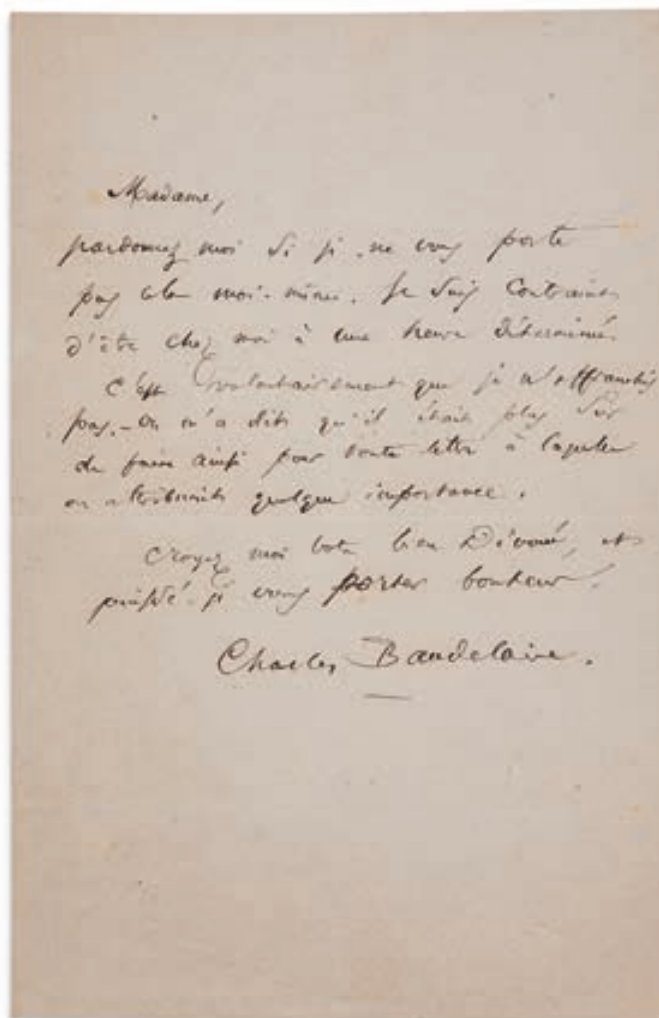 Madame,
pardonnez moi si je ne vous porte
pas cela moi-même. Je suis contraint
d'être chez moi à une heure déterminée.
C'est volontairement que je n'affranchis
pas. – On m'a dit qu'il était plus sûr
de faire ainsi pour toute lettre à laquelle
on attribuait quelque importance.
Croyez moi votre bien Dévoué, et
puissé-je vous porter bonheur.
Charles Baudelaire.